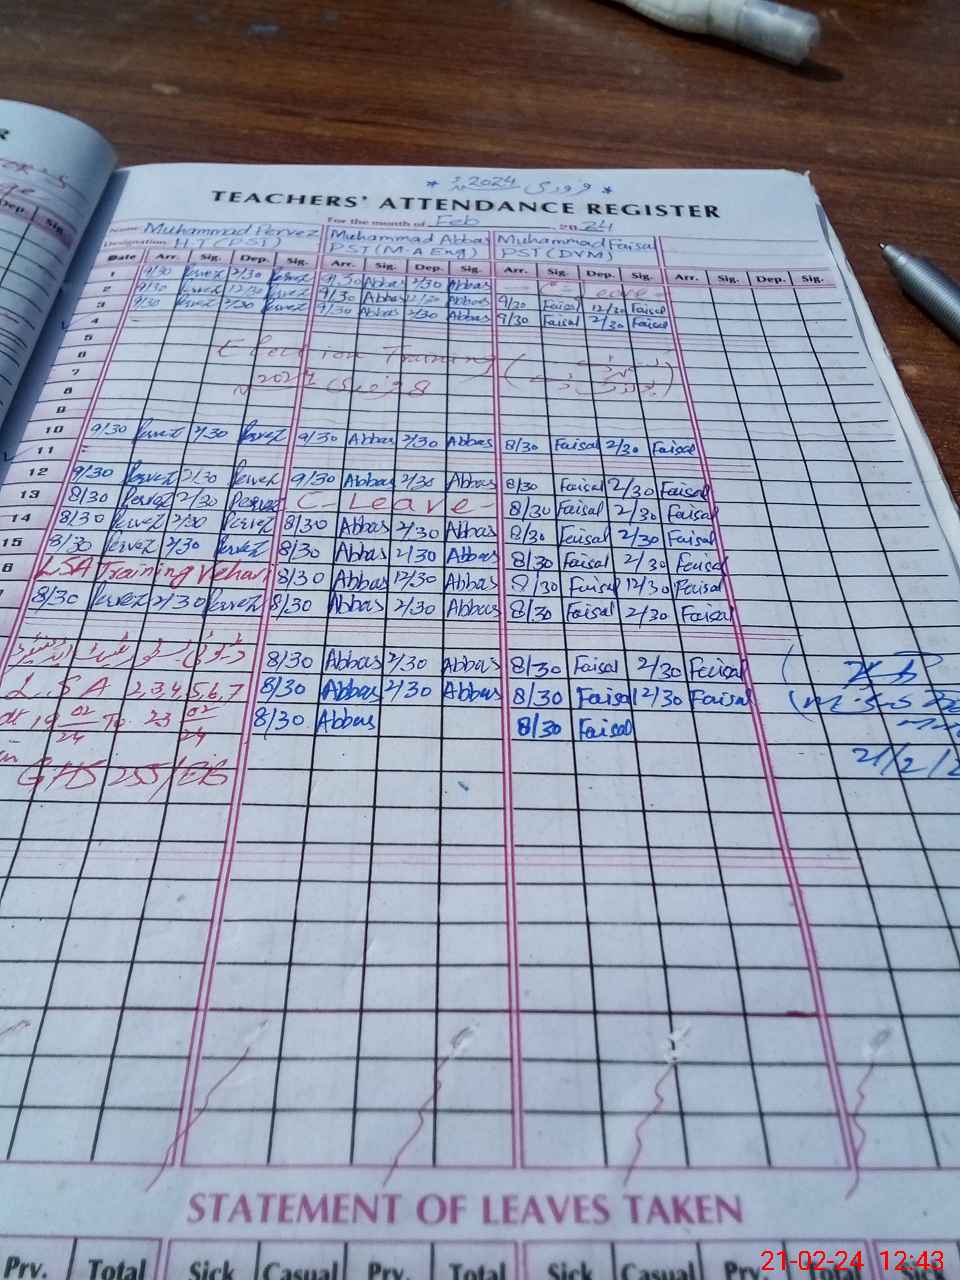 * فروری 2024ء *
TEACHERS' ATTENDANCE REGISTER
For the month of Feb 2024
Name Muhammad Pervez Muhammad Abbas Muhammad Faisal
Designation H.T (PST) PST (M.A Eng) PST (DVM)
Date Arr. Sig. Dep. Sig. Arr. Sig. Dep. Sig. Arr. Sig. Dep. Sig. Arr. Sig. Dep. Sig.
1 9/30 Pervez 2/30 Pervez 9/30 Abbas 2/30 Abbas C Leave
2 9/30 Pervez 12/30 Pervez 9/30 Abbas 12/30 Abbas 9/30 Faisal 12/30 Faisal
3 9/30 Pervez 2/30 Pervez 9/30 Abbas 2/30 Abbas 9/30 Faisal 2/30 Faisal
4
5
6 Election Training
7
8 8 فروری 2024ء
9
10 9/30 Pervez 2/30 Pervez 9/30 Abbas 2/30 Abbas 8/30 Faisal 2/30 Faisal
11
12 9/30 Pervez 2/30 Pervez 9/30 Abbas 2/30 Abbas 8/30 Faisal 2/30 Faisal
13 8/30 Pervez 2/30 Pervez C-Leave- 8/30 Faisal 2/30 Faisal
14 8/30 Pervez 2/30 Pervez 8/30 Abbas 2/30 Abbas 8/30 Faisal 2/30 Faisal
15 8/30 Pervez 2/30 Pervez 8/30 Abbas 2/30 Abbas 8/30 Faisal 2/30 Faisal
6 LSA Training Vehari 8/30 Abbas 12/30 Abbas 8/30 Faisal 12/30 Faisal
8/30 Pervez 2/30 Pervez 8/30 Abbas 2/30 Abbas 8/30 Faisal 2/30 Faisal
8/30 Abbas 2/30 Abbas 8/30 Faisal 2/30 Faisal
LSA 2,3,4,5,6,7 8/30 Abbas 2/30 Abbas 8/30 Faisal 2/30 Faisal
dt 19 02/24 To 23 02/24 8/30 Abbas 8/30 Faisal
in GHS 255/EB 21/2/2
STATEMENT OF LEAVES TAKEN
Prv. Total Sick Casual Prv. Total Sick Casual Prv. Total Sick
21-02-24 12:43